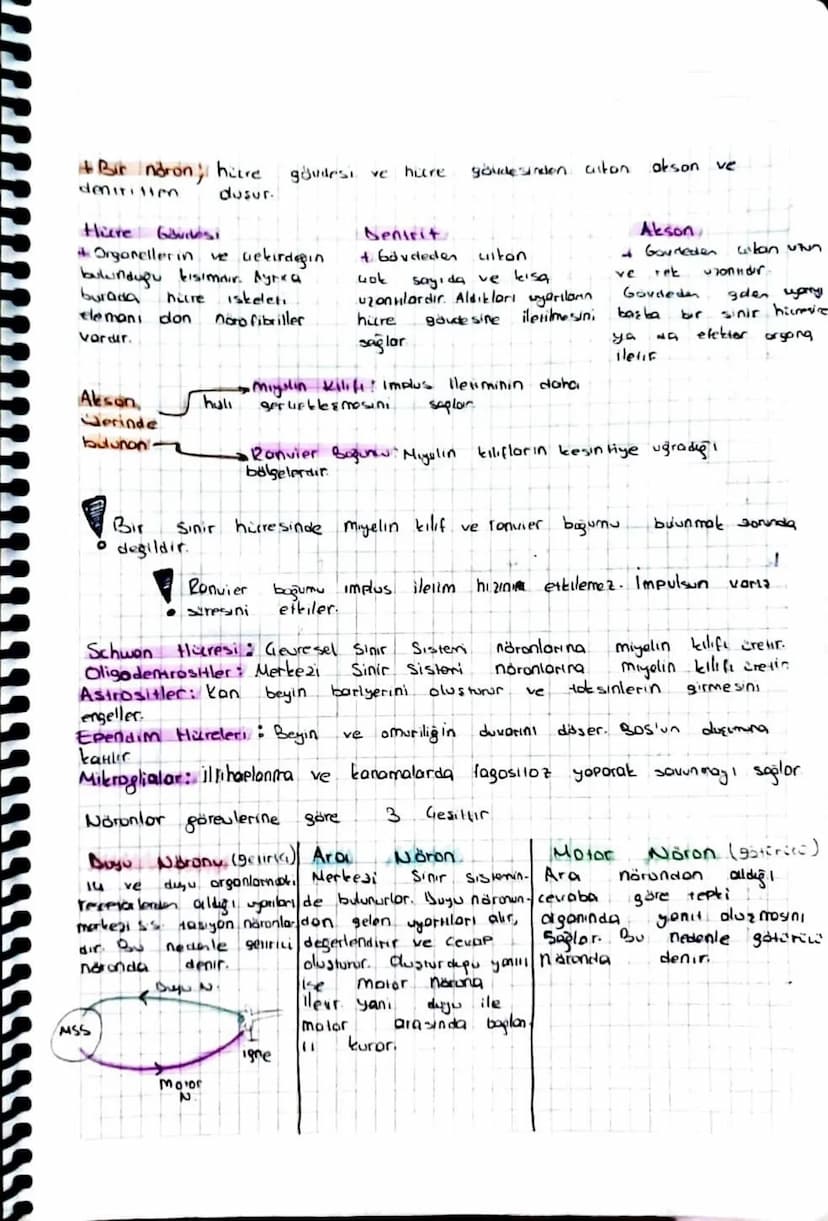 + Bir nöron; hücre gövdesi ve hücre gövdesinden çıkan akson ve
dendritten oluşur.
Hücre Gövdesi
+ Organellerin ve çekirdeğin
bulunduğu kısımdır. Ayrıca
burada hücre iskeleti
elemanı olan nörofibriller
vardır.
Dendrit
+ Gövdeden çıkan
çok sayıda ve kısa
uzantılardır. Aldıkları uyarıların
hücre gövdesine iletilmesini
sağlar
Akson
+ Gövdeden çıkan uzun
ve tek uzantıdır.
Gövdeden gelen uyarıyı
başka bir sinir hücresine
ya da efektör organa
iletir
Akson
üzerinde
bulunan
Miyelin Kılıfı: Implus İletiminin daha
hızlı gerçekleşmesini sağlar
Ranvier Boğumu: Miyelin kılıfların kesintiye uğradığı
bölgelerdir.
! Bir sinir hücresinde miyelin kılıf ve ranvier boğumu bulunmak zorunda
değildir.
! Ranvier boğumu implus iletim hızını etkilemez. İmpulsun varış
süresini etkiler.
Schwan Hücresi: Çevresel Sinir Sistemi nöronlarına miyelin kılıfı üretir.
Oligodentrositler: Merkezi Sinir Sistemi nöronlarına miyelin kılıfı üretir
Astrositler: Kan beyin bariyerini oluşturur ve toksinlerin girmesini
engeller.
Ependim Hücreleri: Beyin ve omuriliğin duvarını döşer. BOS'un oluşumuna
katılır
Mikroglialar: iltihaplanma ve kanamalarda fagositoz yaparak savunmayı sağlar
Nöronlar görevlerine göre 3 çeşittir
Duyu Nöronu (getirici)
iç ve duyu organlarındaki
reseptörlerden aldığı uyarıları
merkezi s.s. taşıyan nöronlar
dır. Bu nedenle getirici
nöronda denir.
Duyu N.
MSS
iğne
Motor
N.
Ara Nöron
Merkezi Sinir sistemin-
de bulunurlar. Duyu nöronun-
dan gelen uyarıları alır,
değerlendirir ve cevap
oluşturur. Oluşturduğu yanıtı
ise motor nörona
iletir yani duyu ile
motor arasında bağlan
tı kurar.
Motor Nöron (götürücü)
Ara nörondan aldığı
cevaba göre tepki
organında yanıt oluşmasını
Sağlar. Bu nedenle götürücü
nöronda denir.